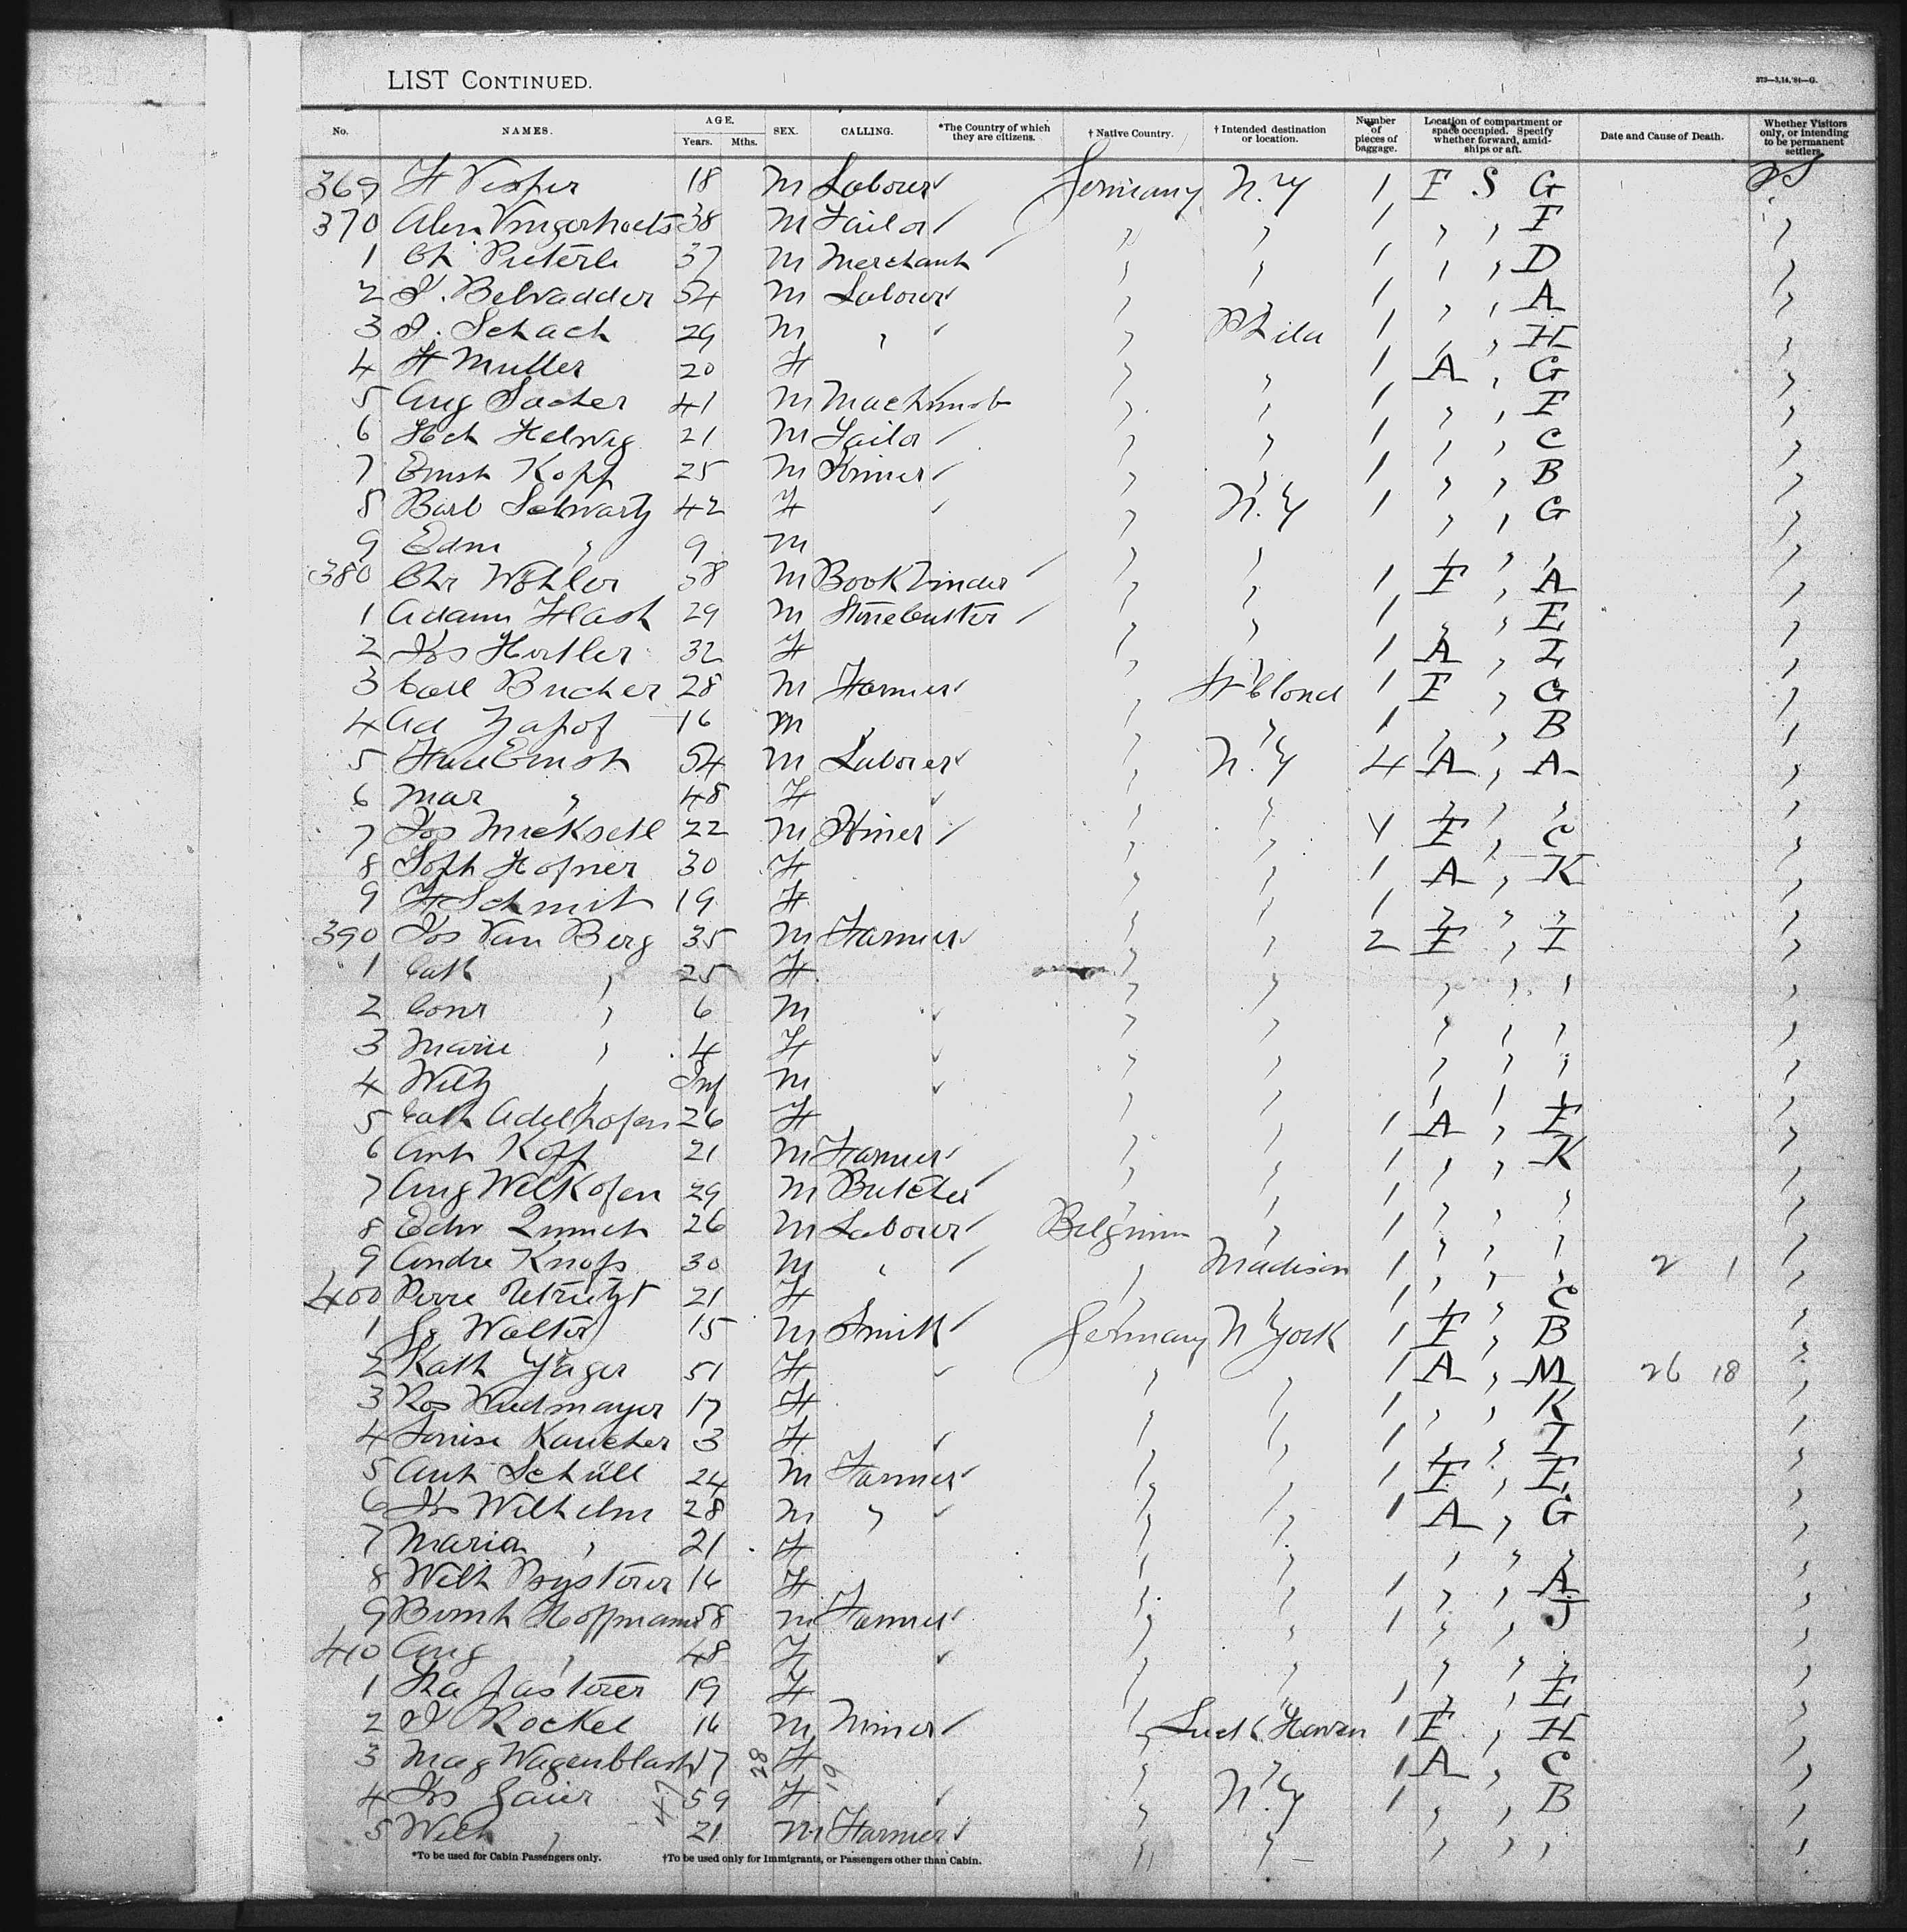 LIST CONTINUED.
373—3,14,'91—G.
No. NAMES. AGE. Years. Mths. SEX. CALLING. *The Country of which they are citizens. † Native Country. † Intended destination or location. Number of pieces of baggage. Location of compartment or space occupied. Specify whether forward, amidships or aft. Date and Cause of Death. Whether Visitors only, or intending to be permanent settlers.
369 H Vesper 18 M Labourer Germany N.Y 1 F S G
370 Vingerhoets 38 M Tailor " " 1 " " F
1 Ch Pieterle 37 M Merchant " " 1 " " D
2 Belvadder 54 M Labourer " " 1 " " A
3 J. Schach 29 M " " Phila 1 " " H
4 H Muller 20 F " " 1 A " G
5 Aug Sacher 41 M Machinist " " 1 " " F
6 Hch Helwig 21 M Tailor " " 1 " " C
7 Ernst Kopp 25 M " " 1 " " B
8 Barb Schwartz 42 F " N.Y 1 " " G
9 Edm " 9 M " " " " "
380 Chr Wöhler 38 M Bookbinder " " 1 F " A
1 Adam Flash 29 M Stonecutter " " 1 " " E
2 Jos Hertler 32 F " " 1 A " I
3 Carl Bucher 28 M Farmer " St Cloud 1 F " G
4 Ad 16 M " " " 1 " " B
5 Ernst 54 M Laborer " N.Y 4 A " A
6 Mar " 48 F " " " " "
7 Jos 22 M Miner " " F " C
8 Soph Hofner 30 F " " 1 A " K
9 H Schmit 19 F " " 1 " " "
390 Jos Van Berg 35 M Farmer " " 2 F " I
1 Cath " 25 F " " " " "
2 Conr " 6 M " " " " "
3 Marie " 4 F " " " " "
4 Wilh " Inf M " " " " "
5 Cath Adelhofen 26 F " " 1 A " F
6 Ant Kopp 21 M Farmer " " 1 " " K
7 Aug Welkofen 29 M Butcher " " 1 " " "
8 Edw 26 M Labourer Belgium " 1 " " "
9 Andre Knops 30 M " " Madison 1 " " " 2 1
400 Pierre 21 F " " 1 " " C
1 Walter 15 M Smith Germany N York 1 F " B
2 Kath Yäger 51 F " " 1 A " M 26 18
3 Ros Wiedmayer 17 F " " 1 " " K
4 Louise Kaucher 3 F " " 1 " " I
5 Ant Schüll 24 M Farmer " " 1 F " E
6 Jos Wilhelm 28 M " " " 1 A " G
7 Maria " 21 F " " " " "
8 Wilh 16 F " " 1 " " A
9 Hoffmann 58 M Farmer " " 1 " " J
410 Aug " 48 F " " " " "
1 Pastorer 19 F " " 1 " " E
2 J Rockel 16 M Miner " Haven 1 F " H
3 Mag Wagenblast 17 28 F 19 " " 1 A " C
4 Jos Gauer 47 59 F " N.Y 1 " " B
5 Wilh " 21 M Farmer " " " " "
*To be used for Cabin Passengers only. †To be used only for Immigrants, or Passengers other than Cabin.